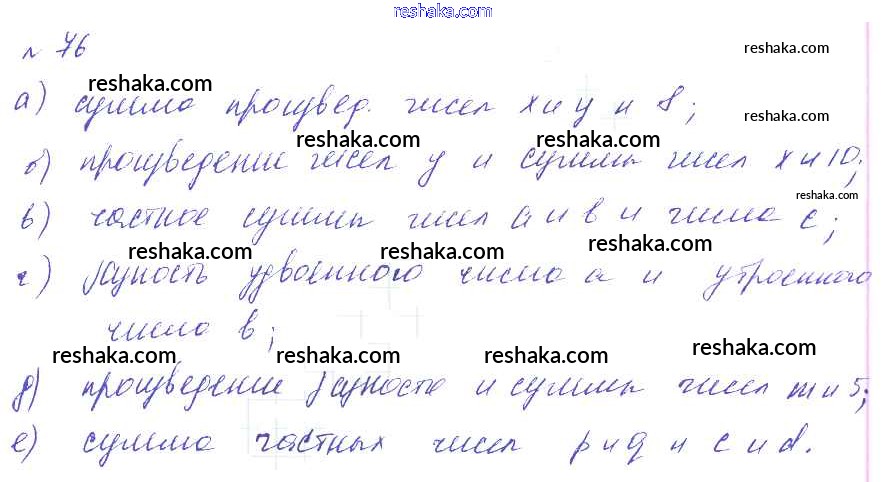 reshaka.com
№ 76
reshaka.com
reshaka.com
а) сумма произвед. чисел x и y и 8;
reshaka.com
reshaka.com reshaka.com
б) произведение чисел y и суммы чисел x и 10;
reshaka.com
в) частное суммы чисел a и b и числа c;
reshaka.com reshaka.com
г) разность удвоенного числа a и утроенного
числа b;
reshaka.com reshaka.com reshaka.com reshaka.com
д) произведение разности и суммы чисел m и 5;
е) сумма частных чисел p и q и c и d.